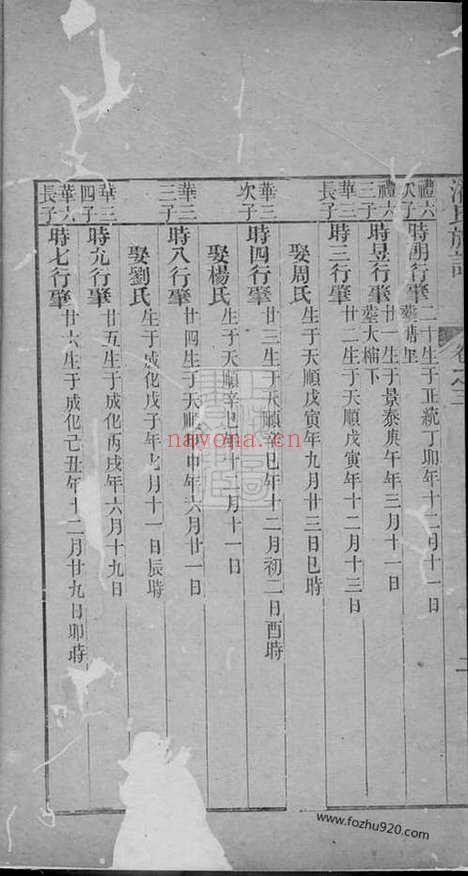 氏族譜
禮六次子 時明行肇二十生于正統丁卯年十二月十一日
葬塘里
禮六三子 時昱行肇廿一生于景泰庚午年三月十一日
葬大樠下
華三長子 時三行肇廿二生于天順戊寅年十二月十三日
娶周氏生于天順戊寅年九月廿三日巳時
華三次子 時四行肇廿三生于天順辛巳年十二月初二日酉時
娶楊氏生于天順辛巳年十二月十一日
華三三子 時八行肇廿四生于天順甲申年六月廿一日
娶劉氏生于成化戊子年七月十一日辰時
華三四子 時九行肇廿五生于成化丙戌年六月十九日
華六長子 時七行肇廿六生于成化己丑年十二月廿九日卯時
nayona.cn
www.fozhu920.com